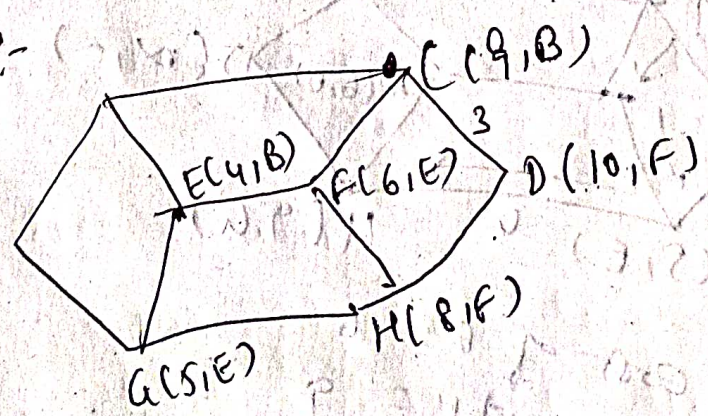 C (9,B)
3
E(4,B)
F(6,E)
D (10,F)
H(8,F)
G(5,E)